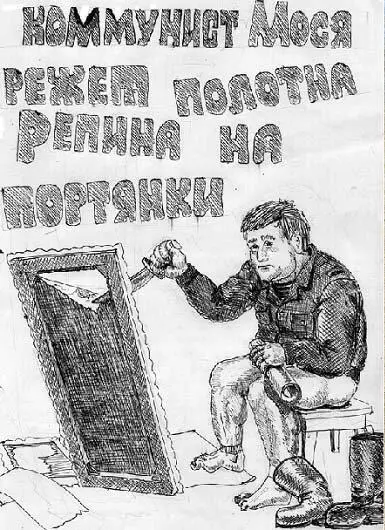 КОММУНИСТ МОСЯ
РЕЖЕТ ПОЛОТНА
РЕПИНА НА
ПОРТЯНКИ